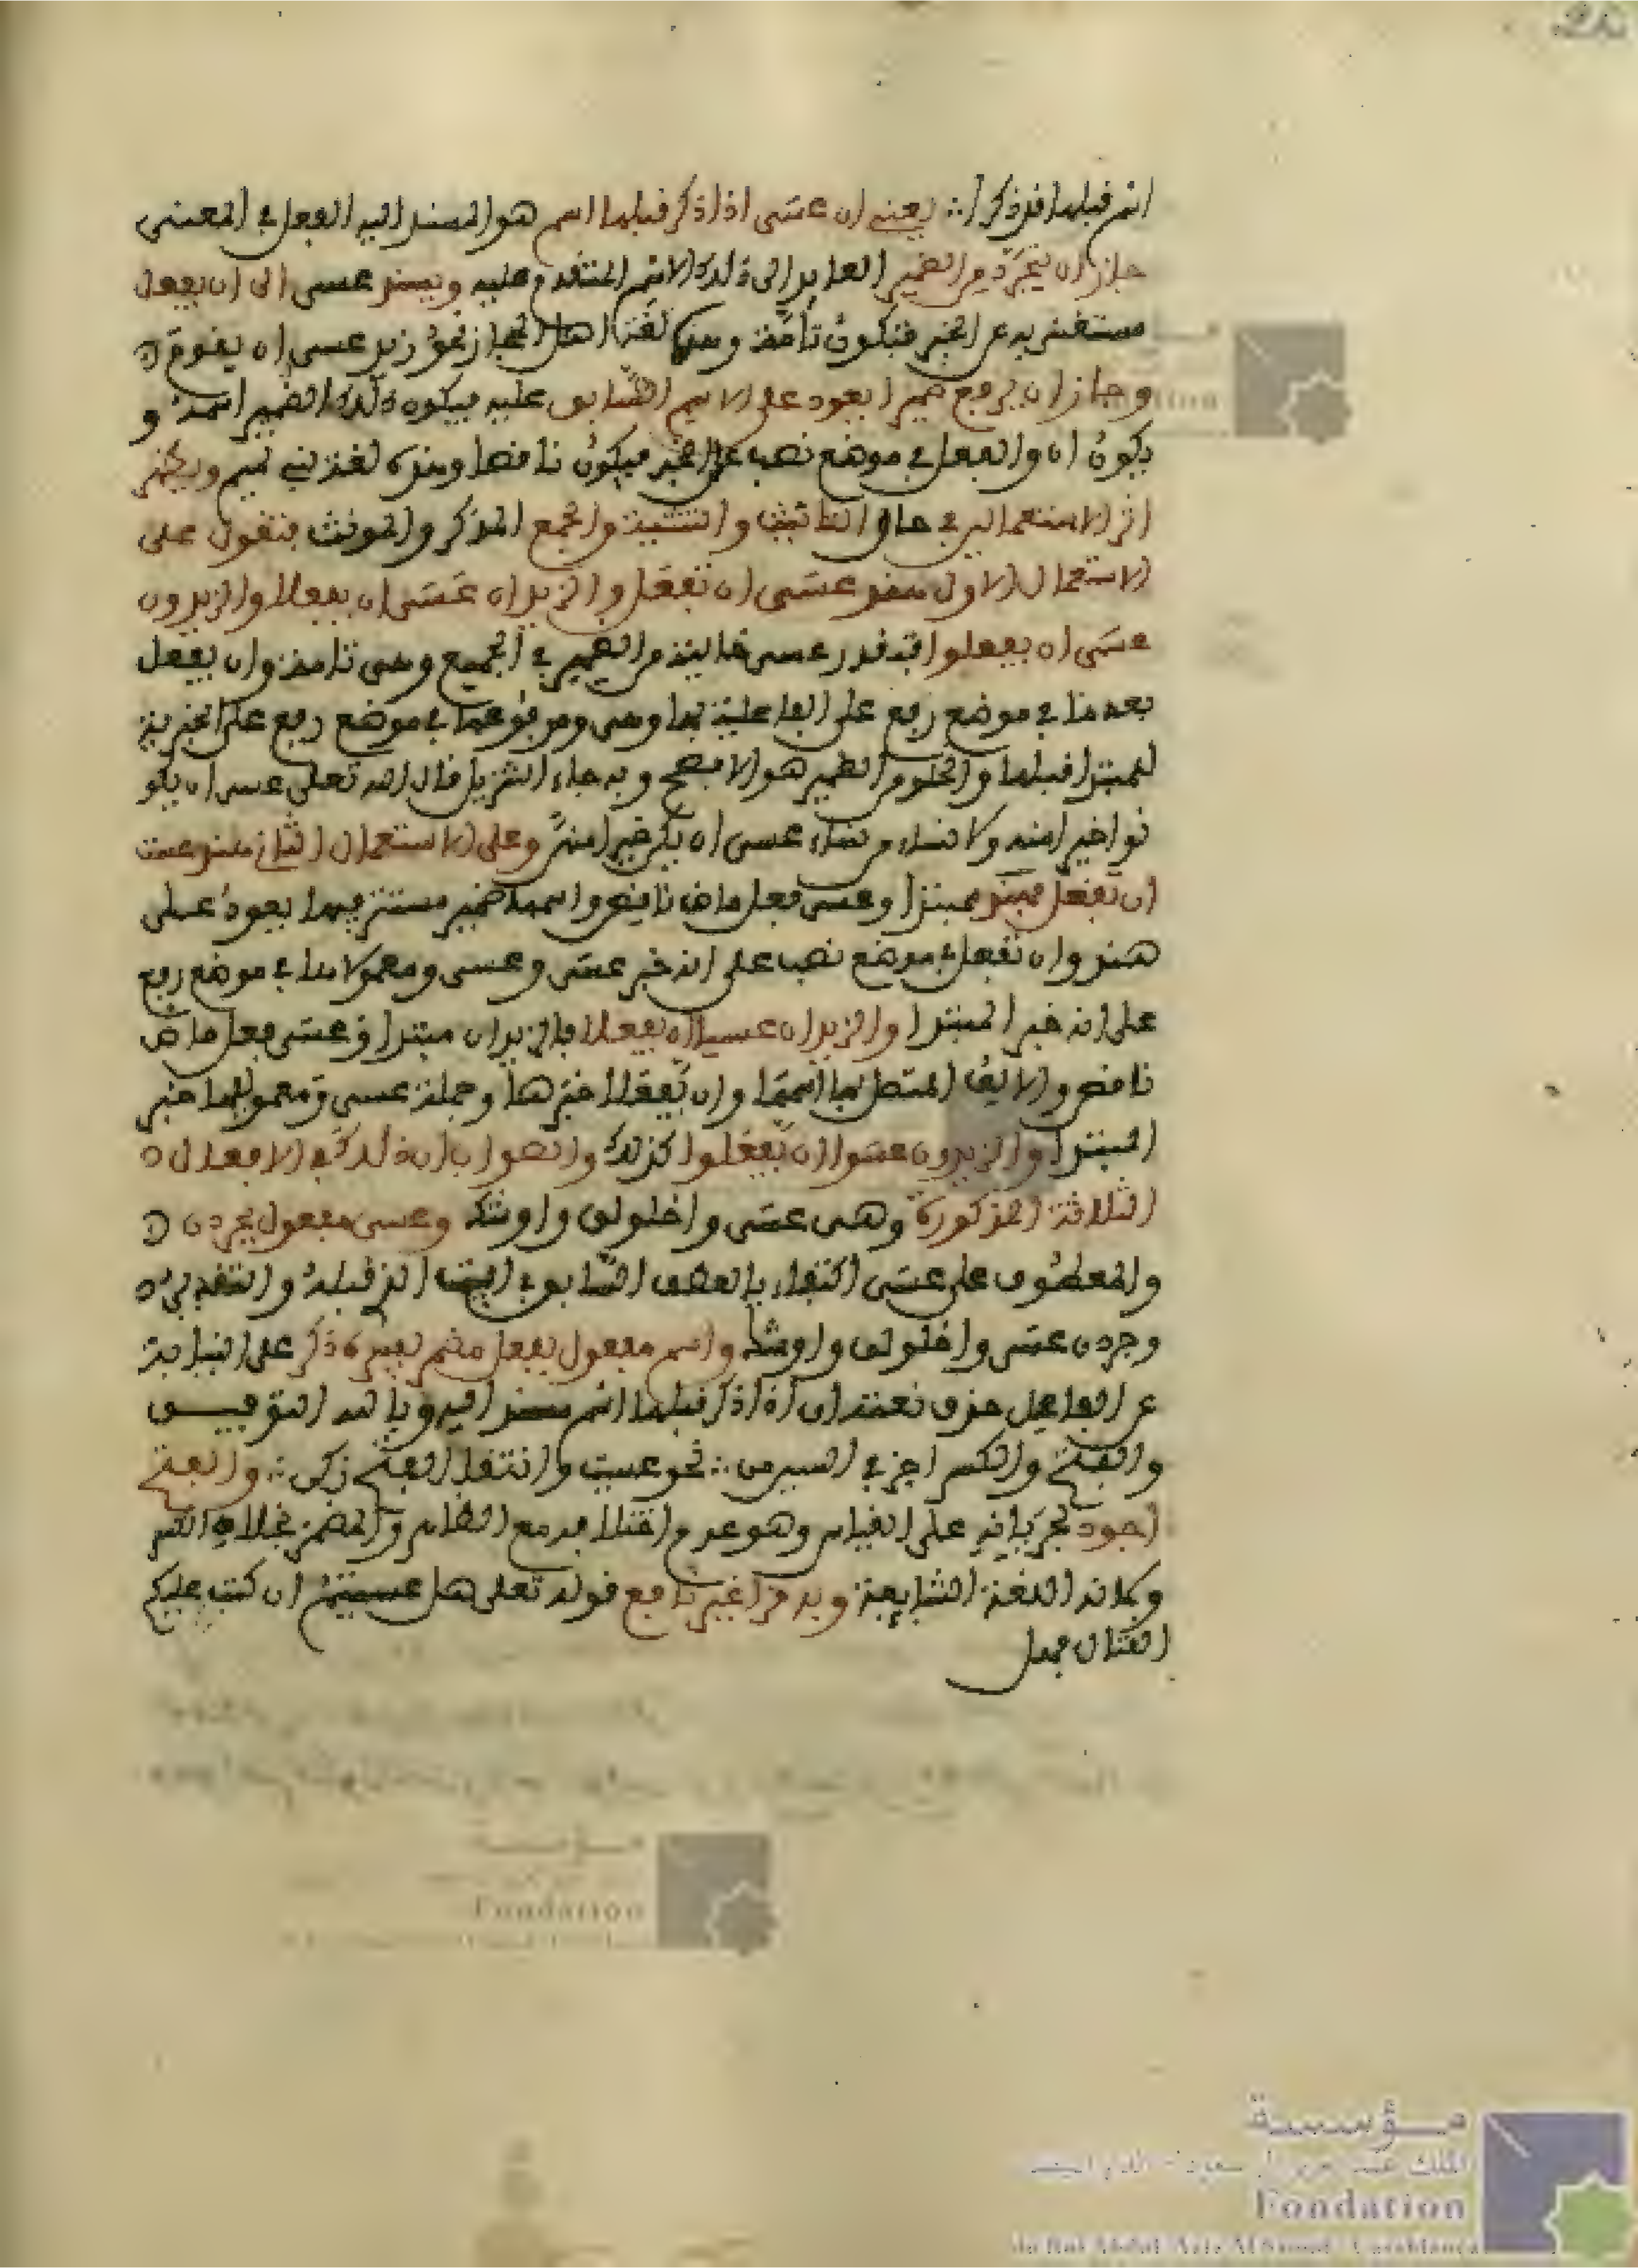 اسم قبلها قد ذكرا ∴ يعني ان عسى اذا ذكر قبلها اسم هو المسند اليه الفعل في المعنى
جاز ان تجرد من الضمير العايد الى ذلك الاسم المتقدم عليه ويسند عسى الى ان يفعل
مستغنى به عن الخبر فتكون تامة وهذه لغة اهل الحجاز نحو زيد عسى ان يقوم
وجاز ان يرفع ضميرا يعود على الاسم السابق عليه فيكون ذلك الضمير اسمه و
يكون ان والفعل في موضع نصب على الخبر فيكون ناقصا وهذه لغة بني تميم ويظهر
اثر الاستعمالين في حال التانيث والتثنية والجمع المذكر والمونث فتقول على
الاستعمال الاول هند عسى ان تفعل والزيدان عسى ان يفعلا والزيدون
عسى ان يفعلوا فتقدر عسى خالية من الضمير في الجميع وهي تامة وان يفعل
بعدها في موضع رفع على الفاعلية بها وهي ومرفوعها في موضع رفع على الخبرية
للمبتدا قبلها والخلو من الضمير هو الافصح وبه جاء التنزيل قال الله تعلى عسى ان يكو
نوا خيرا منهم ولا نساء من نساء عسى ان يكن خيرا منهن وعلى الاستعمال الثاني هند عست
ان تفعل فهند مبتدا وعسى فعل ماض ناقص واسمها ضمير مستتر فيها يعود على
هند وان تفعل في موضع نصب على انه خبر عسى وعسى ومعمولاها في موضع رفع
على انه خبر المبتدا والزيدان عسيا ان يفعلا فالزيدان مبتدا وعسى فعل ماض
ناقص والالف المتصل بها اسمها وان يفعلا خبرها وجملة عسى ومعموليها خبر
المبتدا والزيدون عسوا ان يفعلوا كذلك والصواب ان ذلك في الافعال
الثلاثة المذكورة وهى عسى واخلولق واوشك وعسى مفعول بجردن
والمعطوف على عسى اكتفاء بالعطف السابق في البيت الذي قبله والتقدير
وجردن عسى واخلولق واوشك واسم مفعول بفعل مضمر يفسره ذكر على النيابة
عن الفاعل حذف نعته اى اذا ذكر قبلها اسم مسند اليه وبالله التوفيـــق
والفتح والكسر اجز في السين من ∴ نحو عسيت وانتقا الفتح زكى ∴ والفتح
اجود لجريانه على القياس وهو عدم اختلافه مع الظاهر والمضمر بخلاف الكسر
وكانه اللغة الشايعة وبه قرا غير نافع قوله تعلى هل عسيتم ان كتب عليكم
القتال فهل
مـؤسسة
Fondation
du Roi Abdul-Aziz Al Saoud - Casablanca